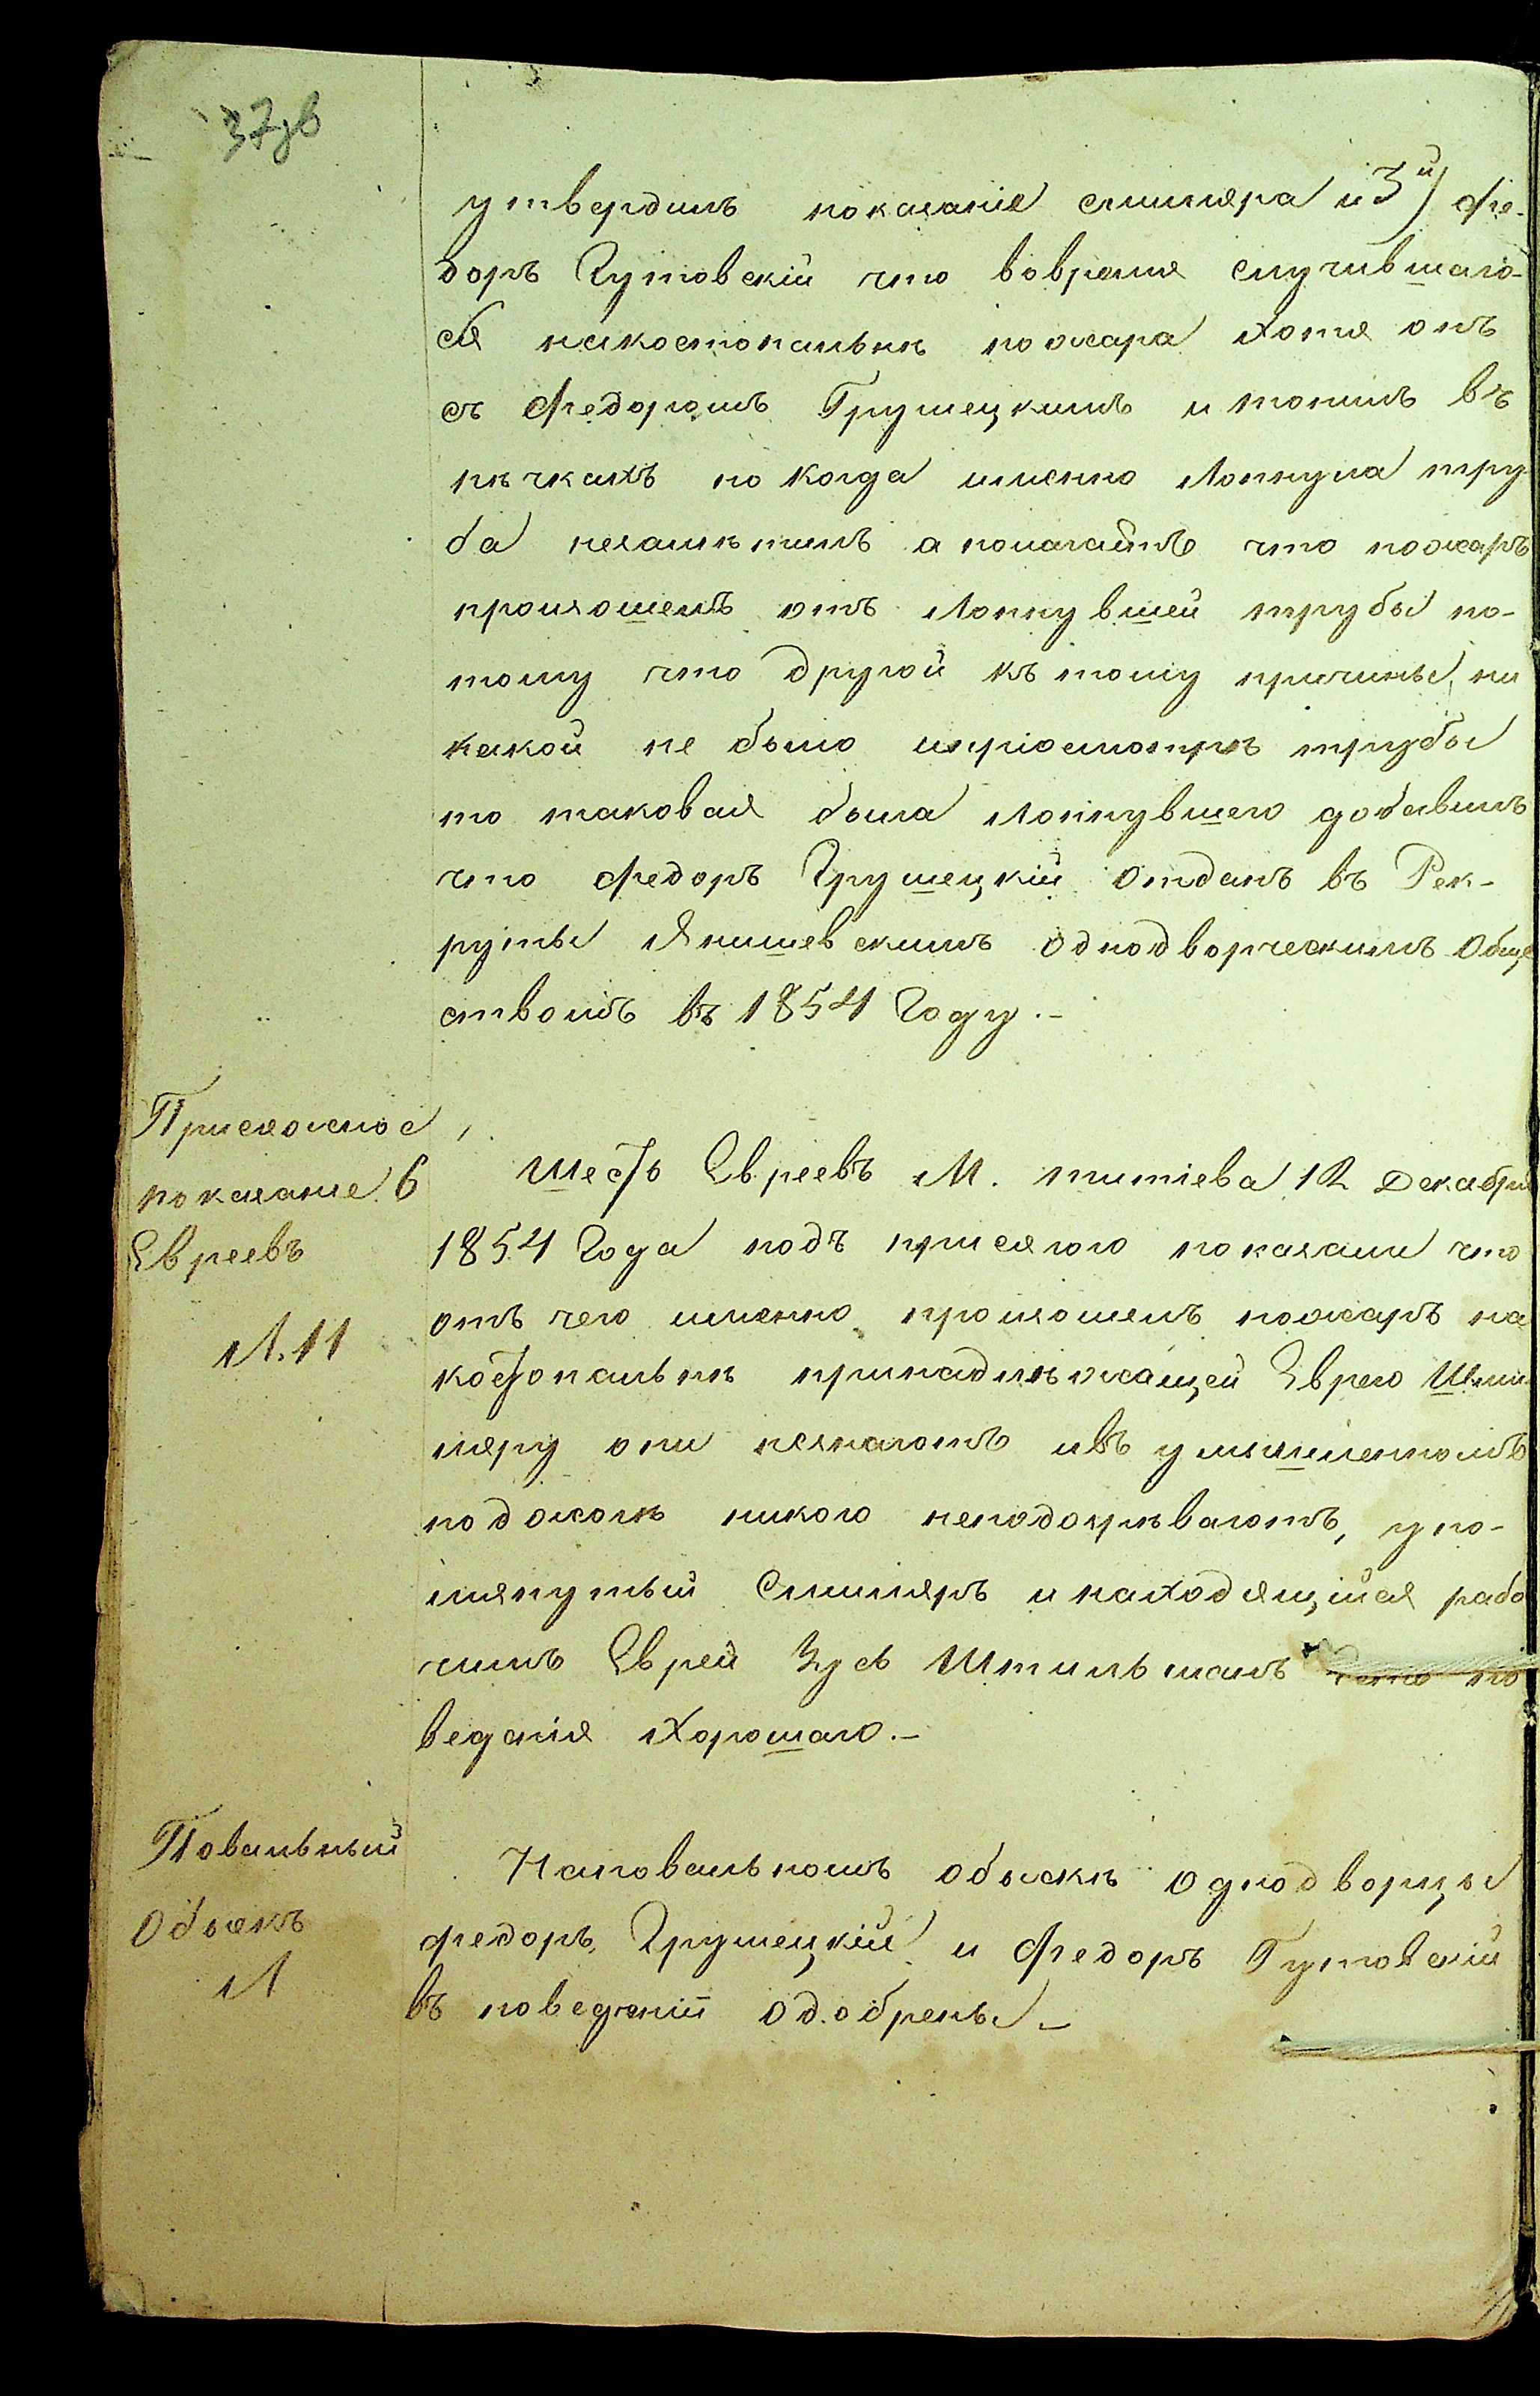 37зв
утвердилъ показанія слимера и 3й) Фе-
доръ Гутовскій что вовремя случившаго-
ся накостопальнѣ пожара хотя онъ
съ Федоромъ Грушецкимъ и топилъ въ
печкахъ но когда именно лопнула тру
ба незамѣтилъ а полагаитъ что пожаръ
произошелъ отъ лопнувшей трубы по-
тому что другой къ тому причины ни
какой не было ипріосмотрѣ трубы
то таковая была лопнувшею добавилъ
что Федоръ Грушецкій отданъ въ Рек-
руты Янишевскимъ однодворческимъ Обще
ствомъ въ 1854 Году.-
Присяжное
показание 6
Евреевъ
Л. 11
Шесть Евреевъ М. титіева 12 Декабря
1854 Года подъ присягою показали что
отъ чего именно произошелъ пожаръ на
костопальнѣ принадлѣжащей Еврею Шли
меру они незнаютъ ивъ умышленномъ
поджогѣ никого неподозрѣваютъ, упо-
мянутый Слимеръ и находящійся рабо
чимъ Еврей Зусь Штильманъ по
веденія Хорошаго.-
Повальный
Обыскъ
Л
Наповальномъ обыскѣ однодворцы
Федоръ Грушецкій и Федоръ Гутовскій
въ поведеніи одобрены.-